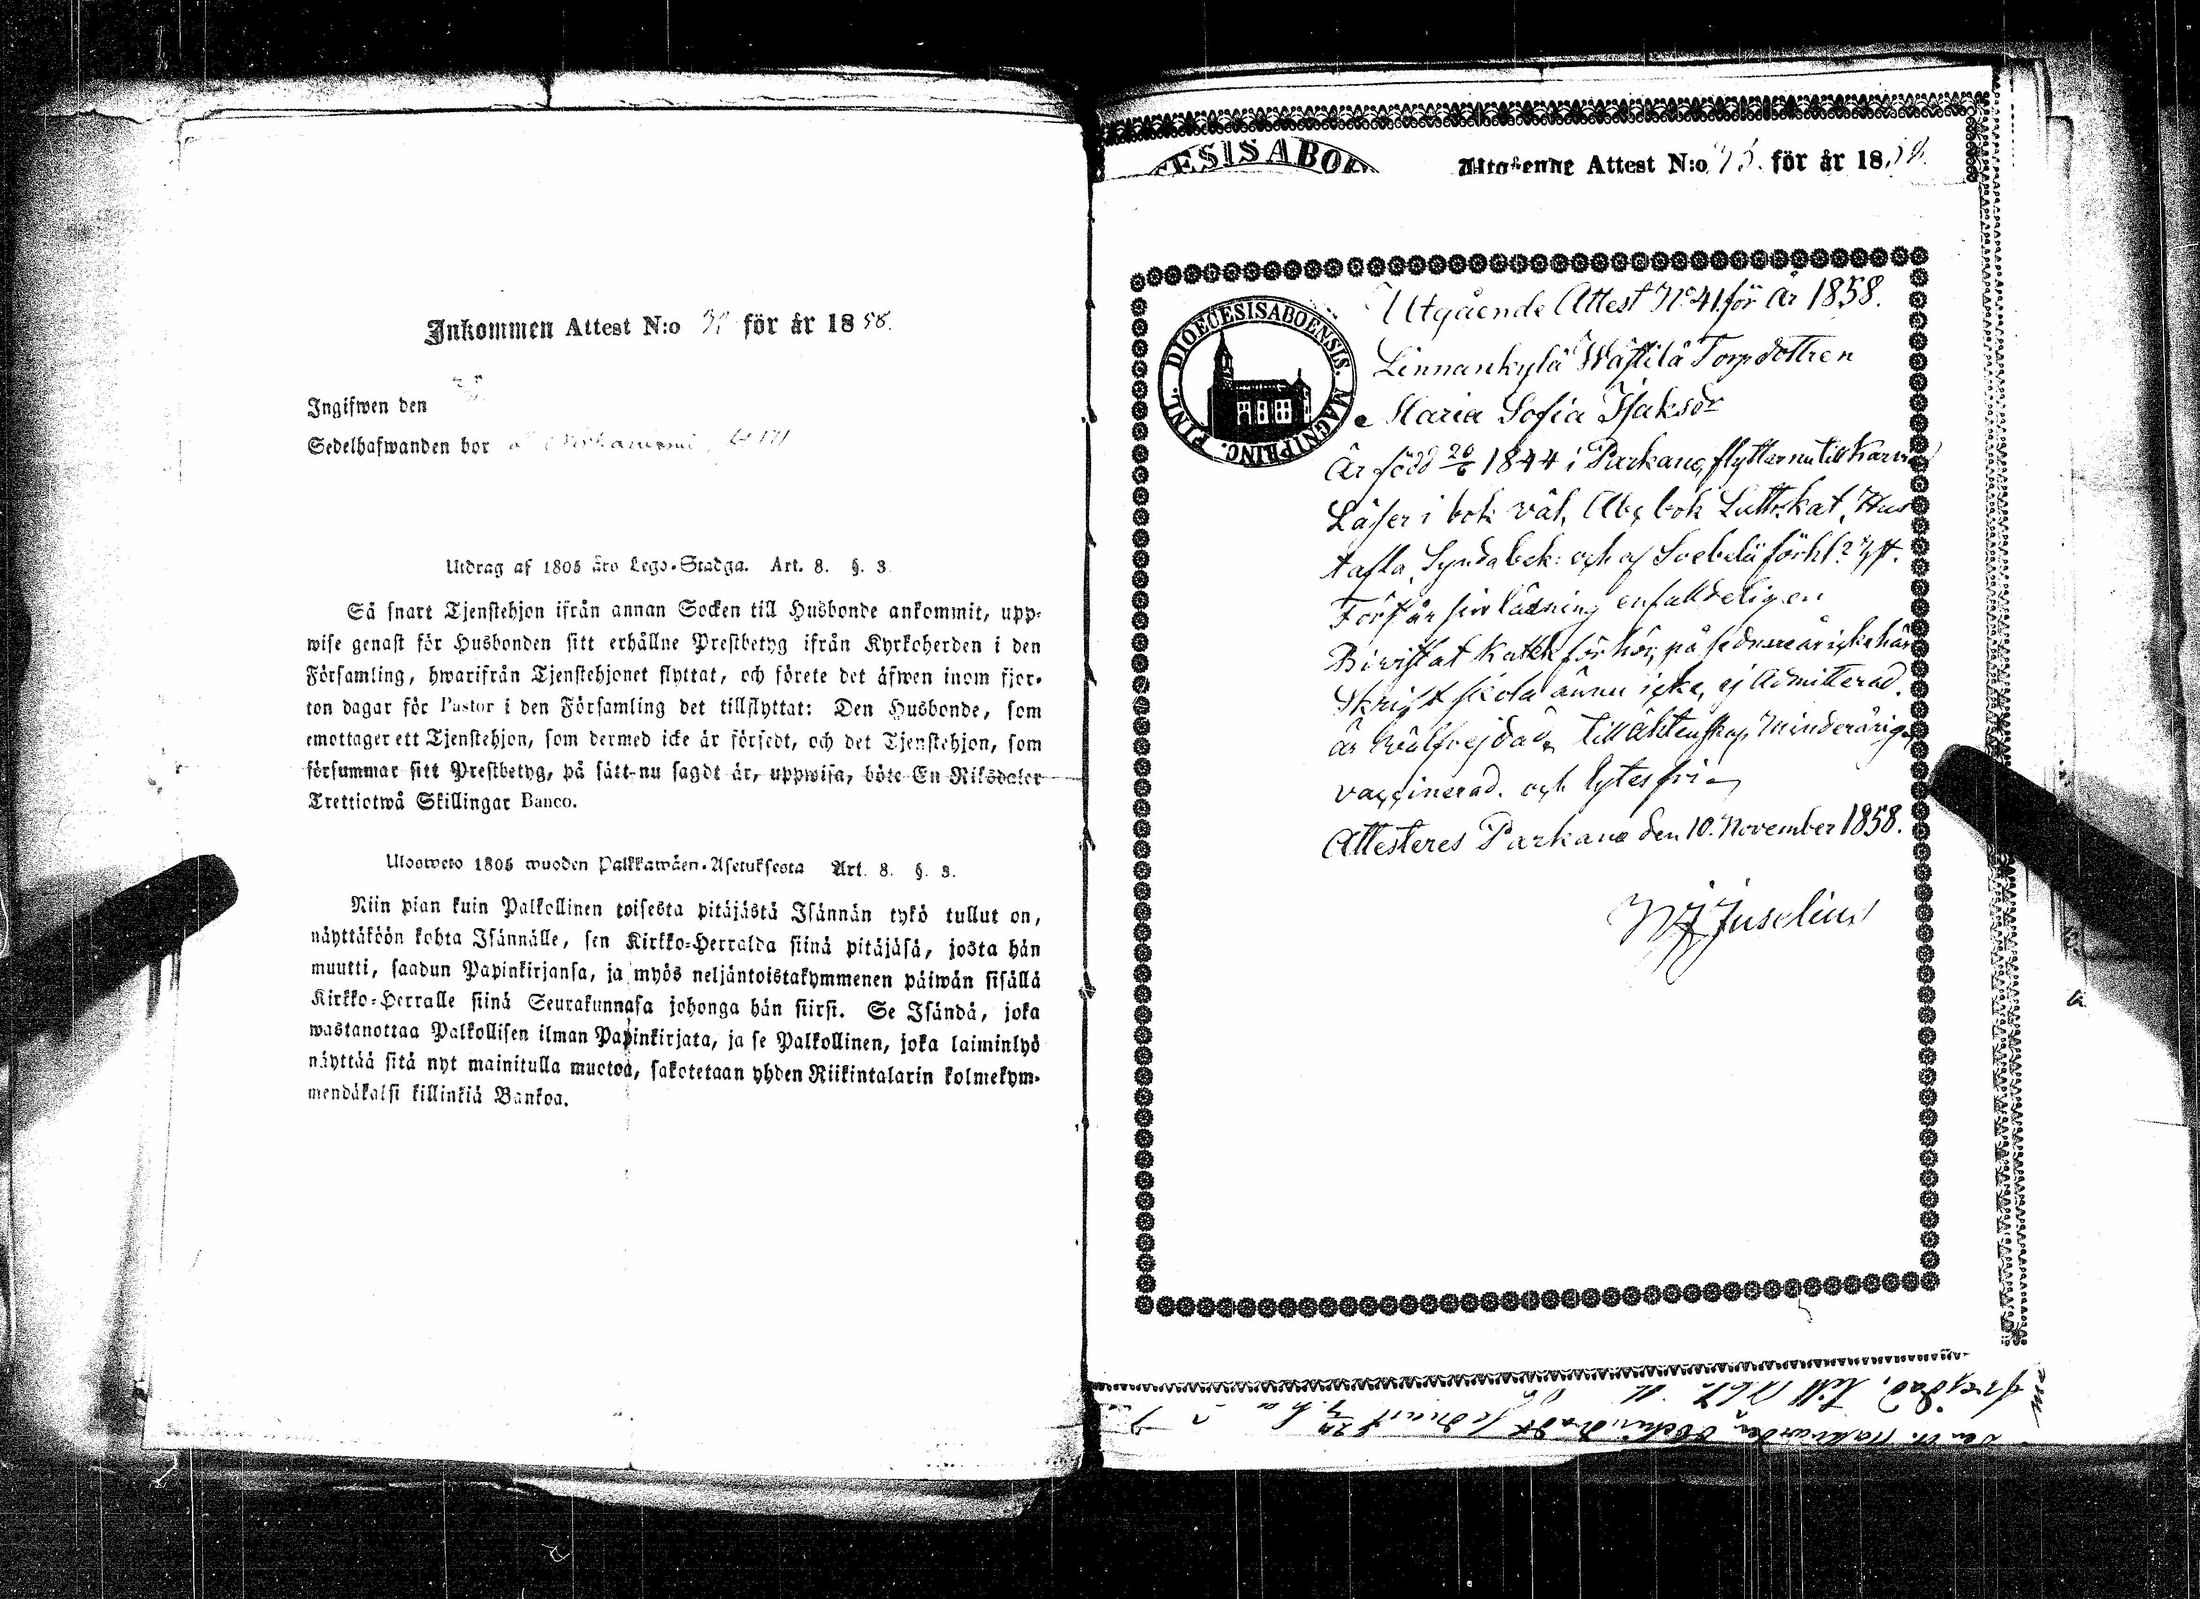 Inkommen Attest N:o för år 1858.
Ingifwen den
Sedelhafwanden bor
Utdrag af 1805 års Lego-Stadga. Art. 8. §. 3.
Så snart Tjenstehjon ifrån annan Socken till Husbonde ankommit, upp-
wise genast för Husbonden sitt erhållne Prestbetyg ifrån Kyrkoherden i den
Församling, hwarifrån Tjenstehjonet flyttat, och förete det äfwen inom fjor-
ton dagar för Pastor i den Församling det tillflyttat: Den Husbonde, som
emottager ett Tjenstehjon, som dermed icke är försedt, och det Tjenstehjon, som
försummar sitt Prestbetyg, på sätt nu sagdt är, uppwisa, böte En Riksdaler
Trettiotwå Skillingar Banco.
Ulosweto 1805 wuoden Palkkawäen-Asetuksesta Art. 8. §. 3.
Niin pian kuin Palkollinen toisesta pitäjästä Isännän tykö tullut on,
näyttäköön kohta Isännälle, sen Kirkko-Herralda siinä pitäjäsä, josta hän
muutti, saadun Papinkirjansa, ja myös neljäntoistakymmenen päiwän sisällä
Kirkko-Herralle siinä Seurakunnasa johonga hän siirsi. Se Isändä, joka
wastanottaa Palkollisen ilman Papinkirjata, ja se Palkollinen, joka laiminlyö
näyttää sitä nyt mainitulla muotoa, sakotetaan yhden Riikintalarin kolmekym-
mendäkaksi killinkiä Bankoa.
ESIS ABOE
Utgående Attest N:o för år 18
DIOECESIS ABOENSIS. MAGNI PRINC. FINL.
Utgående Attest No 41 för år 1858.
Linnankylä Wästilä Torpdottren
Maria Sofia Isaksdr
Är född 20/6 1844 i Parkano, flyttar nu till Karvia
Läser i bok väl, Abc bok Luth. kat, Hus
tafla, Syndabek: och af Svebelii förkl:
Först är sin läsning enfalldeligen
Bivistat Katek förhör, på sednare år icke här
Skriftskola ännu icke, ej Admitterad.
är wälfrejdad, till äktenskap Minderårig
vaccinerad. och lytesfri
Attesteres Parkano den 10. November 1858.
Juselius